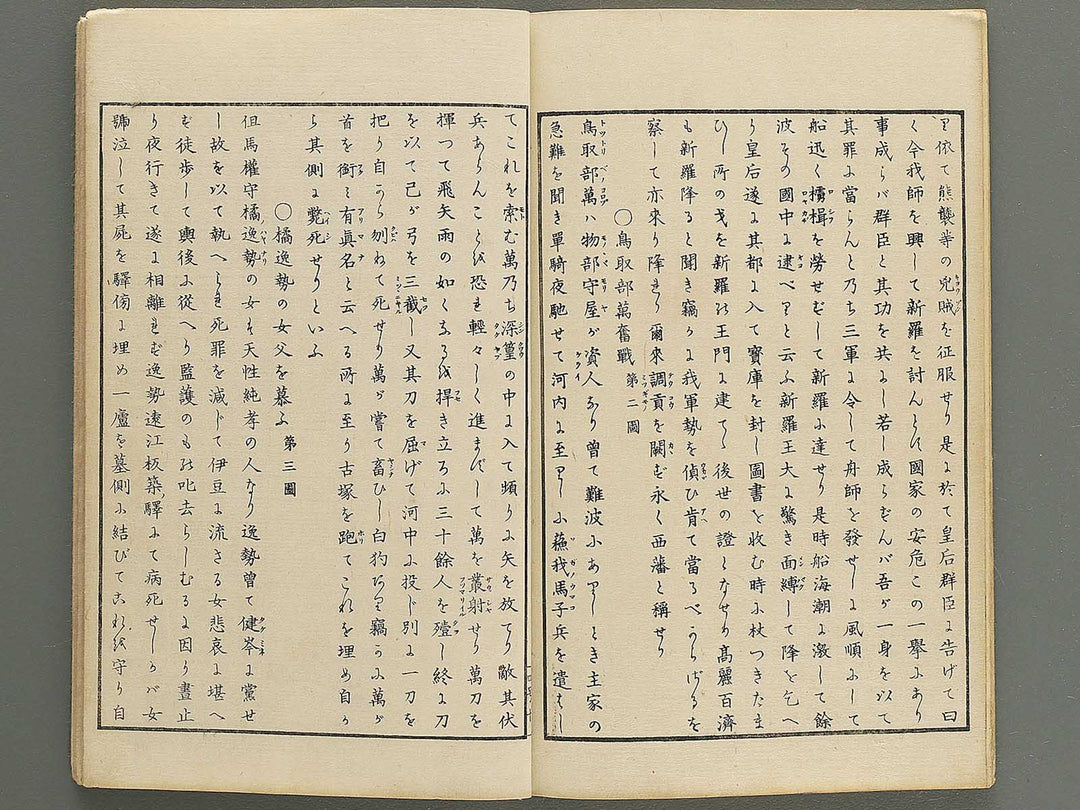 里依て熊襲等の兇賊を征服せり是に於て皇后群臣に告げて曰
く今我師を興して新羅を討んとは國家の安危この一擧にあり
事成らバ群臣と其功を共にし若し成らずんバ吾が一身を以て
其罪に當らんと乃ち三軍に令して舟師を發せしに風順にして
船迅く櫓楫を勞せずして新羅に達せり是時船海潮に激して餘
波その國中に逮べりと云ふ新羅王大に驚き面縛して降を乞へ
り皇后遂に其都に入て寶庫を封し圖書を收む時に杖つきたま
ひし所の戈を新羅の王門に建てゝ後世の證となせり高麗百濟
も新羅降ると聞き竊かに我軍勢を偵ひ肯て當るべからざるを
察して亦來り降る爾來調貢を闕ず永く西藩と稱せり
〇鳥取部萬奮戰 第二圖
鳥取部萬ハ物部守屋が資人なり曾て難波にありしとき主家の
急難を聞き單騎夜馳せて河内に至りしに蘓我馬子兵を遣はし
てこれを索む萬乃ち深篁の中に入て頻りに矢を放てり敵其伏
兵あらんことを恐れ輕々しく進まずして萬を叢射せり萬刀を
揮つて飛矢雨の如くなるを捍き立ろに三十餘人を殪し終に刀
を以て己が弓を三截し又其刀を屈げて河中に投じ別に一刀を
把り自から刎ねて死せり萬が嘗て畜ひし白狗あり竊かに萬が
首を銜ミ有眞名と云へる所に至り古塚を跑てこれを埋め自か
ら其側に斃死せりといふ
〇橘逸勢の女父を慕ふ 第三圖
但馬權守橘逸勢の女は天性純孝の人なり逸勢曾て健岑に黨せ
し故を以て執へられ死罪を減じて伊豆に流さる女悲哀に堪へ
ず徒歩して輿後に從へり監護のもの叱去らしむるに因り晝止
り夜行きて遂に相離れず逸勢遠江板築驛にて病死せしかバ女
號泣して其屍を驛傍に埋め一廬を墓側に結びてこれを守り自